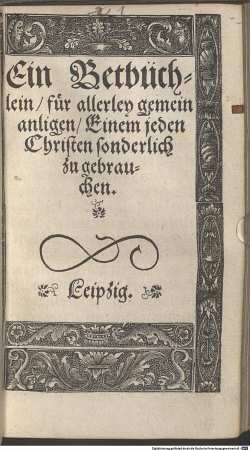 Ein Betbüch-
lein / für allerley gemein
anligen / Einem jeden
Christen sonderlich
zu gebrau-
chen.
Leipzig.